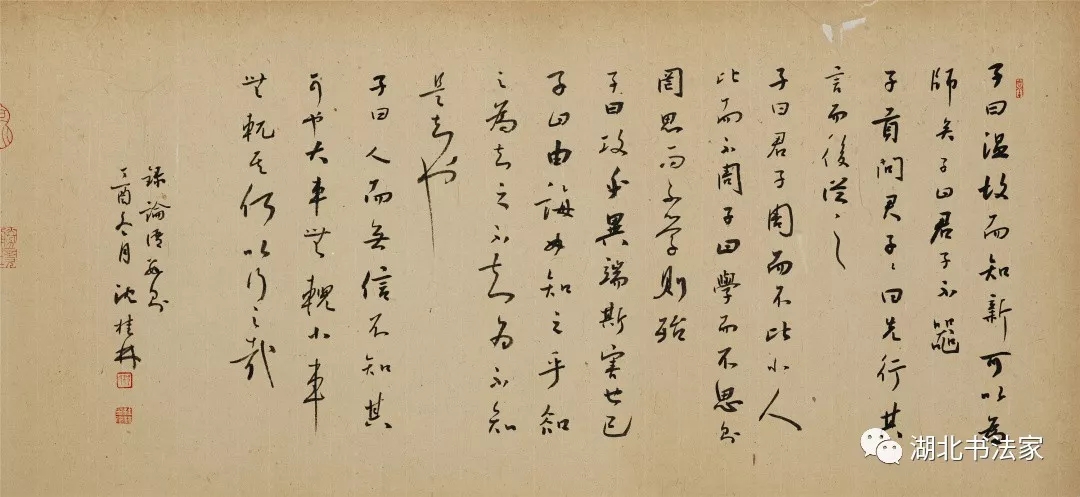 子曰温故而知新可以為
師矣子曰君子不器
子貢問君子々曰先行其
言而後從之
子曰君子周而不比小人
比而不周子曰學而不思則
罔思而不学則殆
子曰攻乎異端斯害也已
子曰由誨女知之乎知
之為知之不知為不知
是知也
子曰人而無信不知其
可也大車無輗小車
無軏其何以行之哉
録論語数則
丁酉冬月沈桂林
湖北书法家